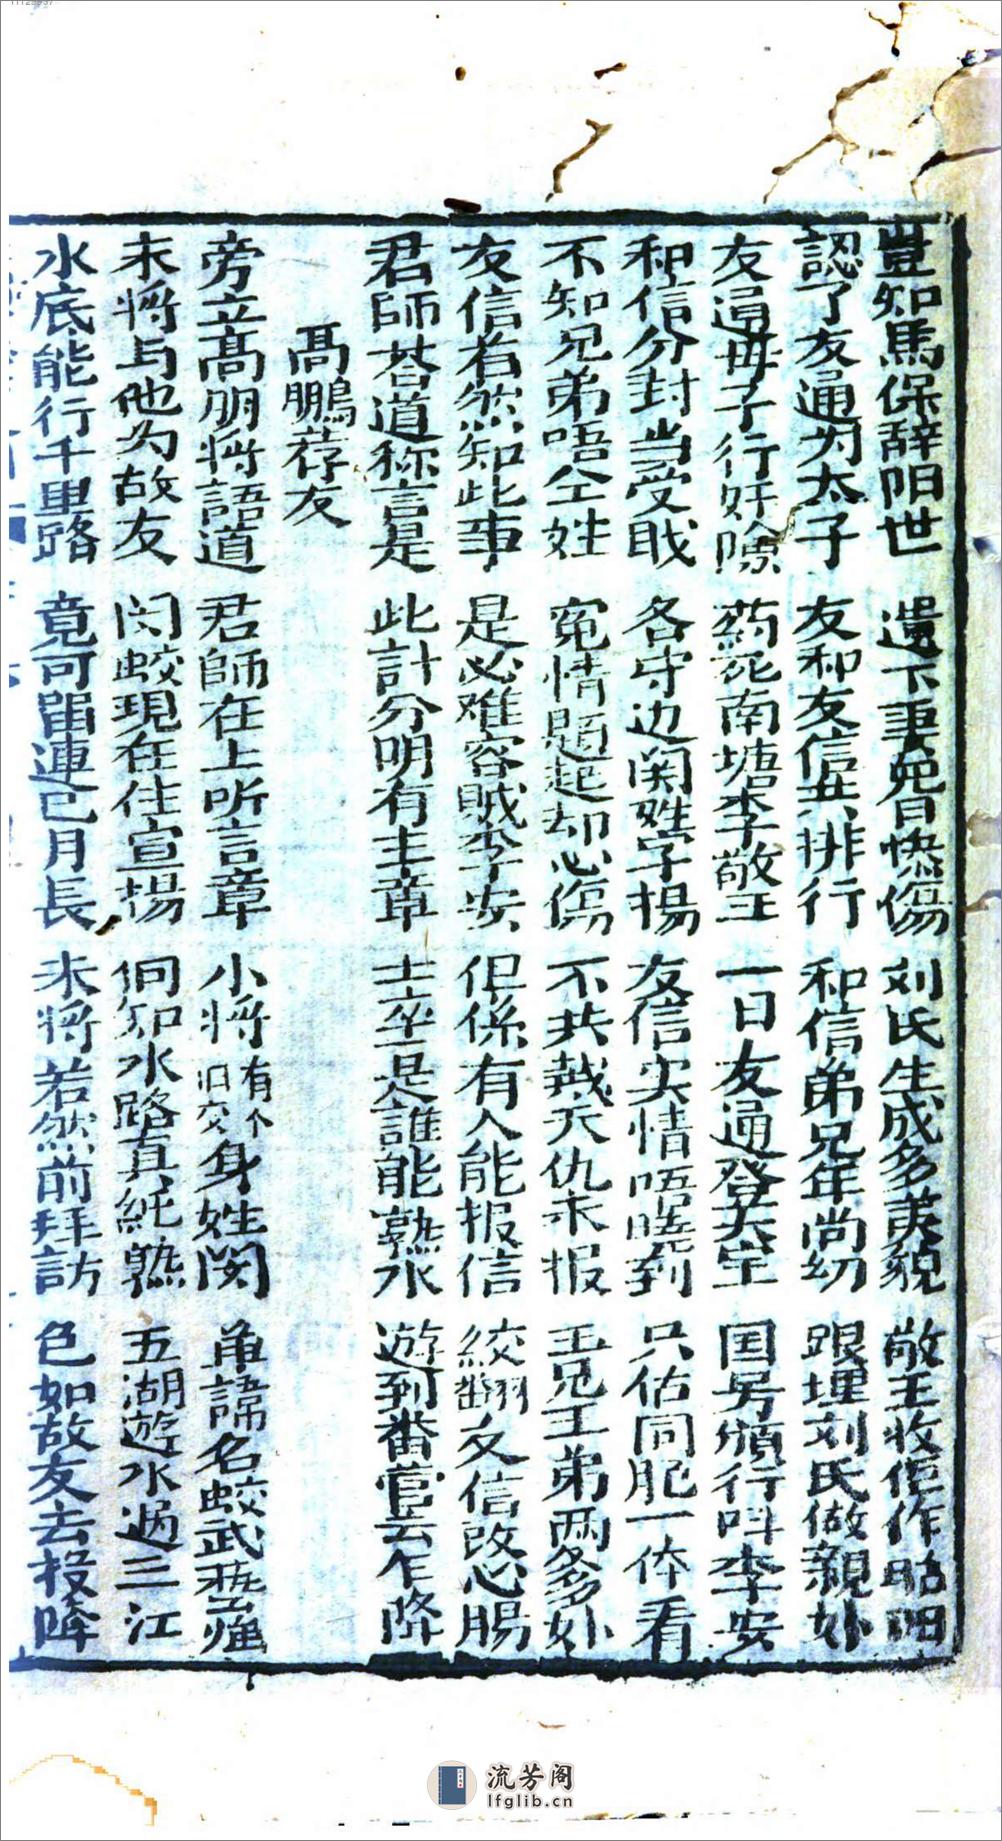 豈知馬保辞阳世 遺下妻児日惨傷 刘氏生成多美貌 敬王收作作昭阳
認了友通为太子 友和友信共排行 和信弟兄年尚幼 跟埋刘氏做親妙
友通毋子行奸險 药死南塘李敬王 一日友通登大宝 国号頒行叫李安
和信分封当受戝 各守边関姓字揚 友信实情唔睹到 只估同肥一体看
不知兄弟唔仝姓 冤情題起却心傷 不共戴天仇未报 王兄王弟两多妙
友信若然知此事 是必难容賊李安 但係有人能报信 絞翻友信改心腸
君師答道称言是 此計分明有主章 士卒是誰能熟水 遊到番营去乍降
高鵬荐友
旁立高朋將語道 君師在上听言章 小將有个旧交身姓関 甬諦名蛟武艺强
末將与他为故友 関蛟現在住宣揚 佢知水路真純熟 五湖遊水過三江
水底能行千里路 竟可留連已月長 末將若然前拜訪 包如故友去投降
流芳阁
lfglib.cn